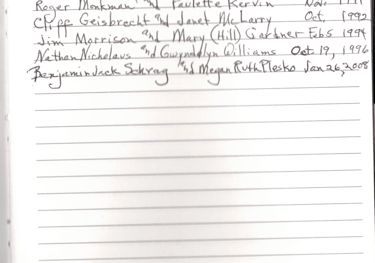 Roger Monkman and Paulette Kervin Nov.
Cliff Geisbrecht and Janet McLarry Oct, 1992
Jim Morrison and Mary (Hill) Gardner Feb 5 1994
Nathan Nicholaus and Gwynddlyn Williams Oct 19, 1996
Benjamin Jack Schrag and Megan Ruth Plesko Jan 26, 2008